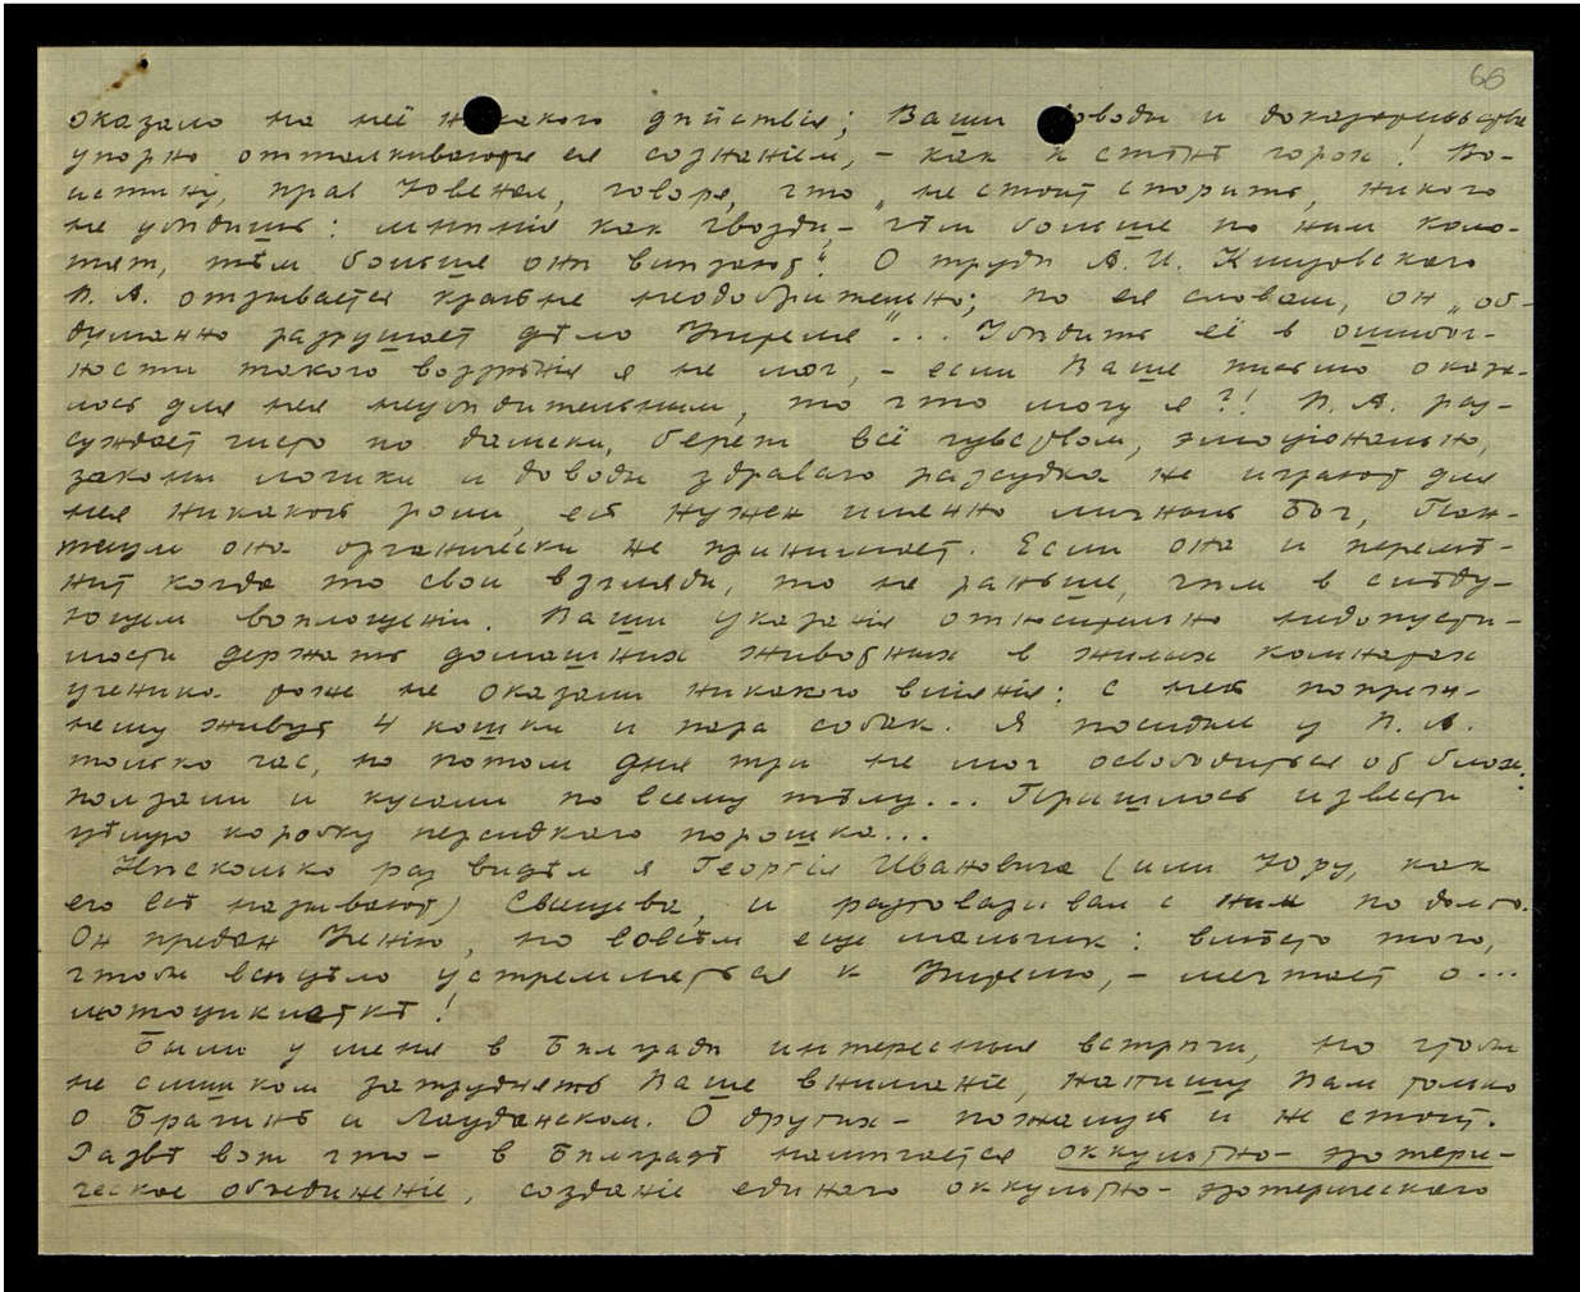 66
оказало на неё никакого дѣйствія; Ваши доводы и доказательства
упорно отталкиваются ея сознаніем, – как к стѣнѣ горох! Во-
истину, прав Ювенал, говоря, что „не стоит спорить, никого
не убѣдишь: мнѣнія как гвозди, – чѣм больше по ним коло-
тят, тѣм больше они влѣзают“. О трудѣ А. И. Клизовскаго
В. А. отзывается крайне неодобрительно; по ея словам, он „об-
думанно разрушает дѣло Учителя“... Убѣдить её в ошибоч-
ности такого воззрѣнія я не мог, – если Ваше письмо оказа-
лось для нея неубѣдительным, то что могу я?! В. А. раз-
суждает чисто по дамски, берет всё чувством, эмоціонально,
законы логики и доводы здраваго разсудка не играют для
нея никакой роли, ей нужен именно личный Бог, Пан-
теизм она органически не принимает. Если она и перемѣ-
нит когда то свои взгляды, то не раньше, чѣм в слѣду-
ющем воплощеніи. Ваши указанія относительно недопусти-
мости держать домашних животных в жилых комнатах
ученика тоже не оказали никакого вліянія: с ней попреж-
нему живут 4 кошки и пара собак. Я посидѣл у В. А.
только час, но потом дня три не мог освободиться от блох:
ползали и кусали по всему тѣлу... Пришлось извести
цѣлую коробку персидкаго порошка...
Нѣсколько раз видѣл я Георгія Ивановича (или Юру, как
его всѣ называют) Свищева, и разговаривал с ним подолгу.
Он предан Ученію, но совсѣм еще мальчик: вмѣсто того,
чтобы всецѣло устремляться к Учителю, – мечтает о...
мотоциклеткѣ!
Были у меня в Бѣлградѣ интересныя встрѣчи, но чтобы
не слишком затруднять Ваше вниманіе, напишу Вам только
о Брагинѣ и Лауданском. О других – пожалуй и не стоит.
Развѣ вот что – в Бѣлградѣ намѣчается оккультно-эзотери-
ческое объединеніе, созданіе единаго оккультно-эзотерическаго